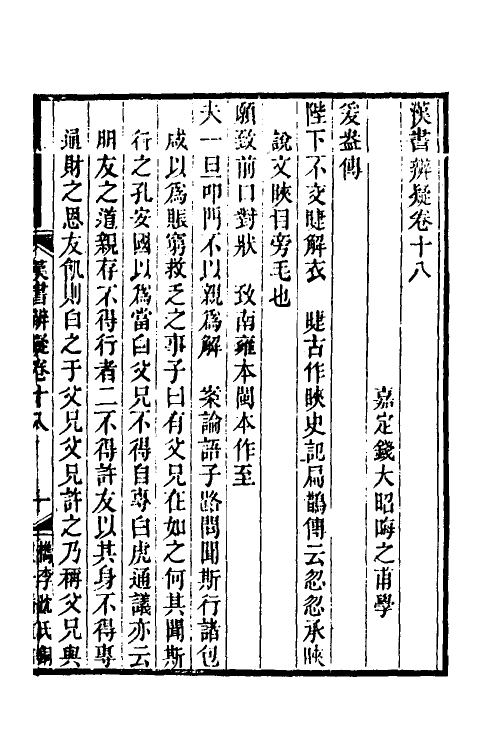 漢書辨疑卷十八
嘉定錢大昭晦之甫學
爰盎傳
陛下不交睫解衣　睫古作䀹史記扁鵲傳云忽忽承䀹
說文䀹目旁毛也
願致前口對狀　致南雍本閩本作至
夫一旦叩門不以親爲解　案論語子路問聞斯行諸包
咸以爲賑窮救乏之事子曰有父兄在如之何其聞斯
行之孔安國以爲當白父兄不得自專白虎通議亦云
朋友之道親存不得行者二不得許友以其身不得專
通財之恩友飢則白之于父兄父兄許之乃稱父兄與
漢書辨疑卷十八　十　檇李沈氏